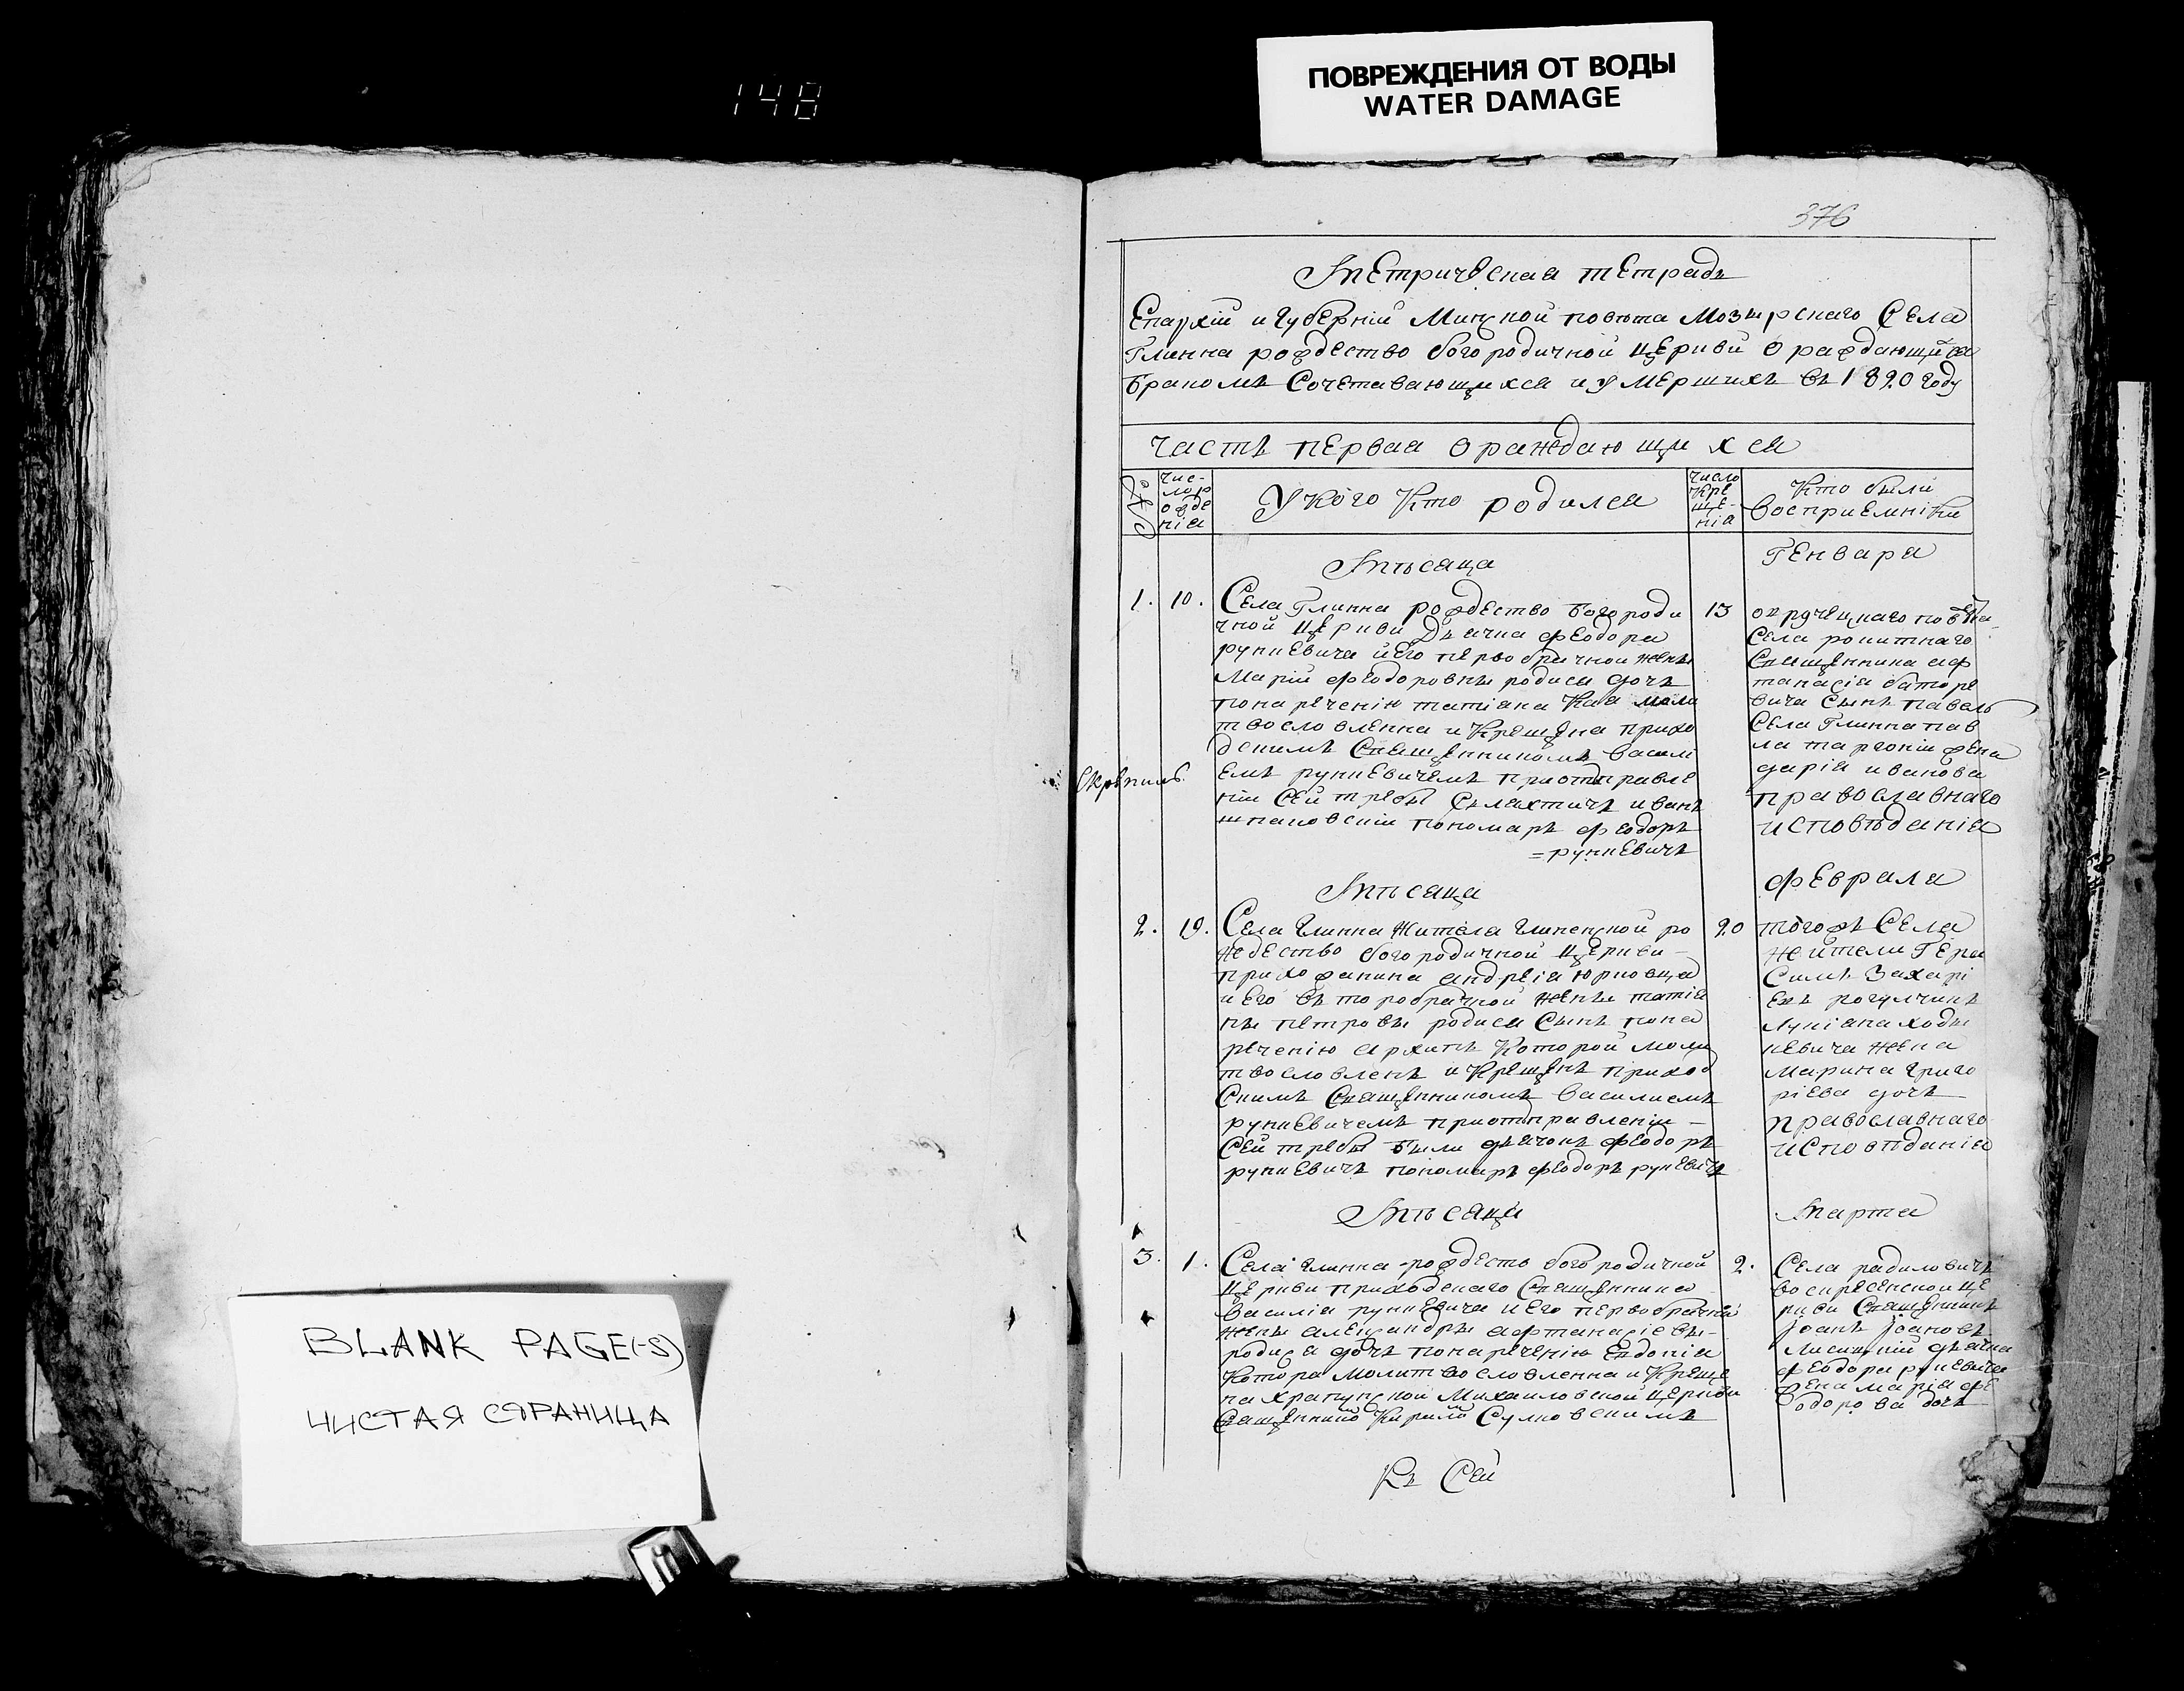 148
ПОВРЕЖДЕНИЯ ОТ ВОДЫ
WATER DAMAGE
BLANK PAGE(-S)
ЧИСТАЯ СТРАНИЦА
376
Метрическая тетрадь
Епархіи и губерніи Минской повѣта Мозырскаго Села
Глинна рождество богородичной церкви О раждающихся
бракомъ Сочетавающихся и умершихъ въ 1820 году
часть первая О раждающихся
№
чис-
лор
ожде
нія
У кого Кто родился
число
Кре
ще-
нія
Кто были
восприемніки
Мѣсяца
Генваря
1. 10.
Села Глинна рождество богороди
чной церкви Дьячка Феодора
рункевича и его первобрачной жены
Маріи Феодоровны родися дочь
по наречению татіана Коя моли
твословленна и Крещена прихо
дскимъ Священникомъ Васили
емъ рункевичемъ при отправле
нии Сей требы Сьлахтичъ иванъ
шпаковскіи пономарь Феодоръ
=рункевичъ
13
села ропитнаго
Священника аф
танасія
вича Сынъ павелъ
Села Глинна пав
ла жена
дарія иванова
православнаго
исповѣданія
Мѣсяца
Февраля
2. 19.
Села Глинна жителя глиненской ро
ждество богородичной церкви -
прихожанина андреія юрковца
и его въторобрачной жены татія
ны петровы родися Сынъ по на
речению архипъ Которой моли
твословленъ и Крещенъ приход
Скимъ Священникомъ василиемъ
рункевичемъ при отправлении -
Сей требы были дьячокъ Феодоръ
рункевичъ пономарь Феодоръ рункевичъ
20
тогожъ Села
жители Гера
Симъ Захарі
евъ рогулчикъ
лукіана ходы
кевича жена
марина григо
ріева дочь
православнаго
исповѣданія
Мѣсяца
Марта
3. 1.
Села Глинна рождесть богородичной
церкви приходскаго Священника
Василія рункевича и его первобрачной
жены александры афтанасіевы -
родися дочь по наречению Евдокія
Котора Молитвословленна и Креще
на Храпунской Михаиловской церкви
Священико Кирило Сулковскимъ
2.
Села радиловичъ
воскресенской це
ркви Священникъ
Іоанъ Іоановъ
Лисицкій дьячка
Феодора рункевича
жена марія фе
одорова дочь
Къ Сей